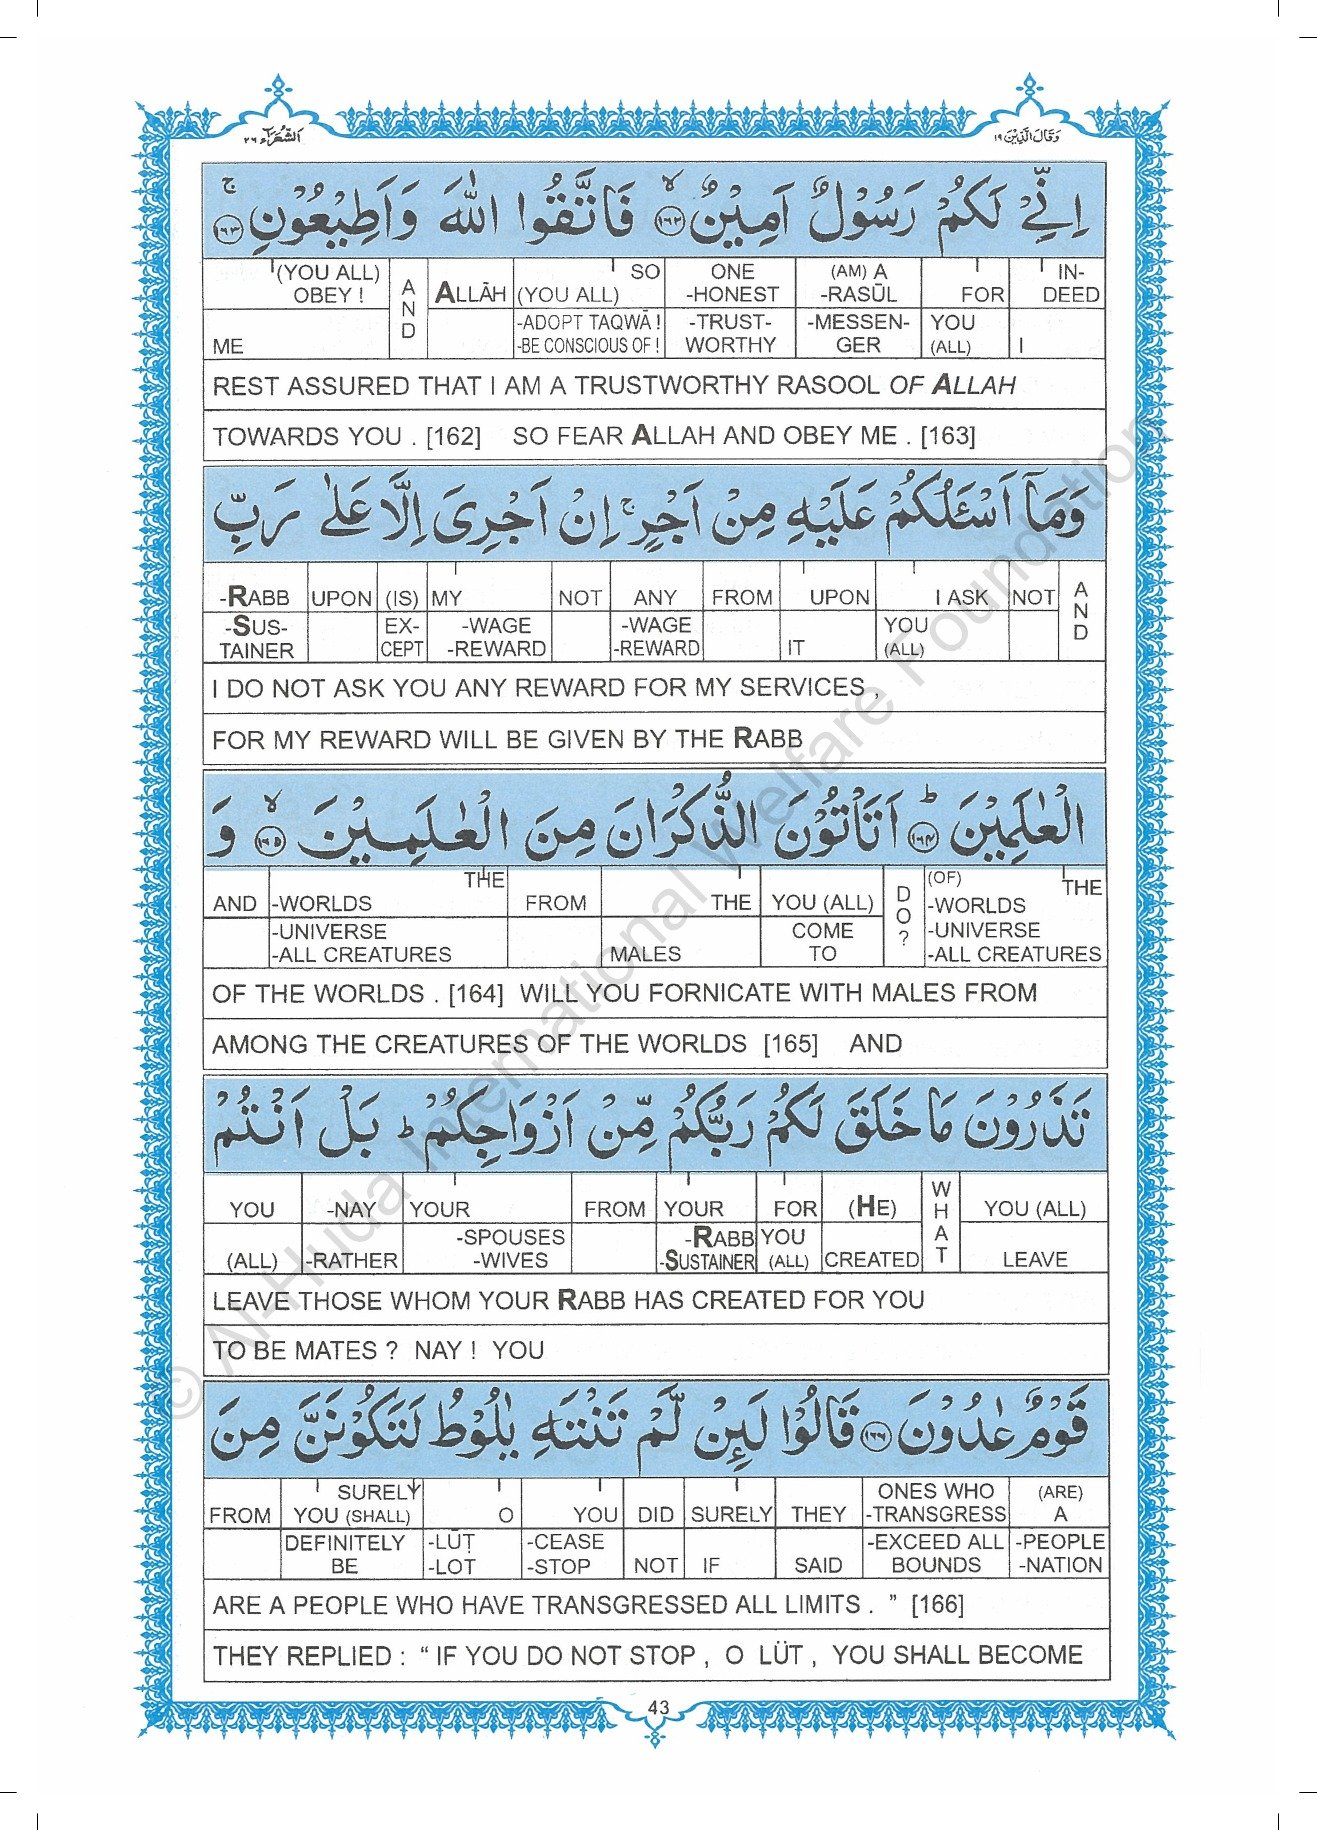 وَقَالَ الَّذِيْنَ ١٩
الشُّعَرَآء ٢٦
اِنِّيْ لَكُمْ رَسُوْلٌ اَمِيْنٌ ۙ ١٦٢ فَاتَّقُوا اللّٰهَ وَاَطِيْعُوْنِ ۚ ١٦٣
(YOU ALL) AND ALLĀH SO ONE (AM) A IN-
OBEY ! (YOU ALL) -HONEST -RASŪL FOR DEED
-ADOPT TAQWĀ ! -TRUST- -MESSEN- YOU
ME -BE CONSCIOUS OF ! WORTHY GER (ALL) I
REST ASSURED THAT I AM A TRUSTWORTHY RASOOL OF ALLAH
TOWARDS YOU . [162] SO FEAR ALLAH AND OBEY ME . [163]
وَمَاۤ اَسْـَٔلُكُمْ عَلَيْهِ مِنْ اَجْرٍ ۚ اِنْ اَجْرِىَ اِلَّا عَلٰى رَبِّ
-RABB UPON (IS) MY NOT ANY FROM UPON I ASK NOT AND
-SUS- EX- -WAGE -WAGE YOU
TAINER CEPT -REWARD -REWARD IT (ALL)
I DO NOT ASK YOU ANY REWARD FOR MY SERVICES ,
FOR MY REWARD WILL BE GIVEN BY THE RABB
الْعٰلَمِيْنَ ؕ ١٦٤ اَتَاْتُوْنَ الذُّكْرَانَ مِنَ الْعٰلَمِيْنَ ۙ ١٦٥ وَ
THE DO? (OF) THE
AND -WORLDS FROM THE YOU (ALL) -WORLDS
-UNIVERSE COME -UNIVERSE
-ALL CREATURES MALES TO -ALL CREATURES
OF THE WORLDS . [164] WILL YOU FORNICATE WITH MALES FROM
AMONG THE CREATURES OF THE WORLDS [165] AND
تَذَرُوْنَ مَا خَلَقَ لَكُمْ رَبُّكُمْ مِّنْ اَزْوَاجِكُمْ ؕ بَلْ اَنْتُمْ
YOU -NAY YOUR FROM YOUR FOR (HE) WHAT YOU (ALL)
-SPOUSES -RABB YOU
(ALL) -RATHER -WIVES -SUSTAINER (ALL) CREATED LEAVE
LEAVE THOSE WHOM YOUR RABB HAS CREATED FOR YOU
TO BE MATES ? NAY ! YOU
قَوْمٌ عٰدُوْنَ ١٦٦ قَالُوْا لَىِٕنْ لَّمْ تَنْتَهِ يٰلُوْطُ لَتَكُوْنَنَّ مِنَ
SURELY ONES WHO (ARE)
FROM YOU (SHALL) O YOU DID SURELY THEY -TRANSGRESS A
DEFINITELY -LŪṬ -CEASE -EXCEED ALL -PEOPLE
BE -LOT -STOP NOT IF SAID BOUNDS -NATION
ARE A PEOPLE WHO HAVE TRANSGRESSED ALL LIMITS . ” [166]
THEY REPLIED : “ IF YOU DO NOT STOP , O LÜT , YOU SHALL BECOME
43
© Al-Huda International Welfare Foundation